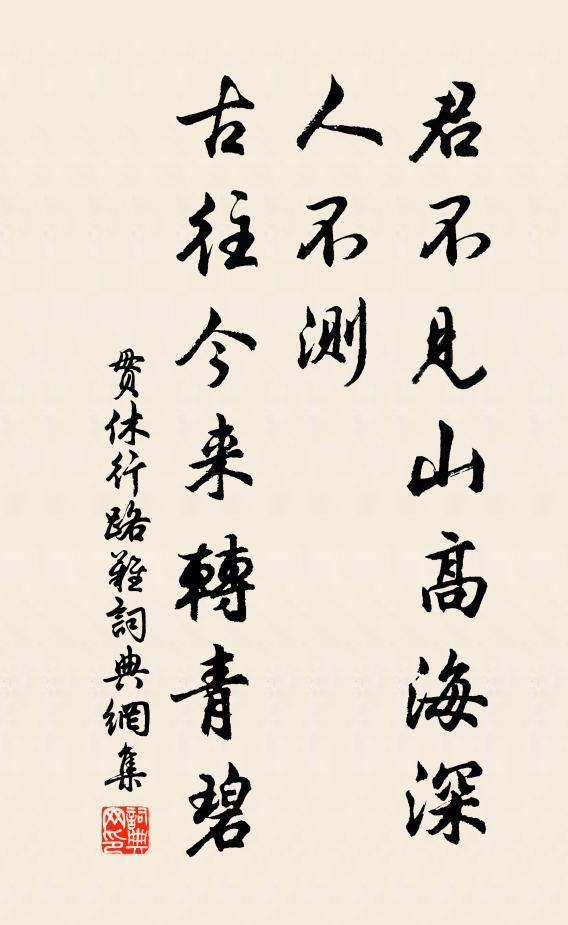 君不見山高海深
人不測
古往今来轉青碧
貫休行路難詞典網集
詞典
网印